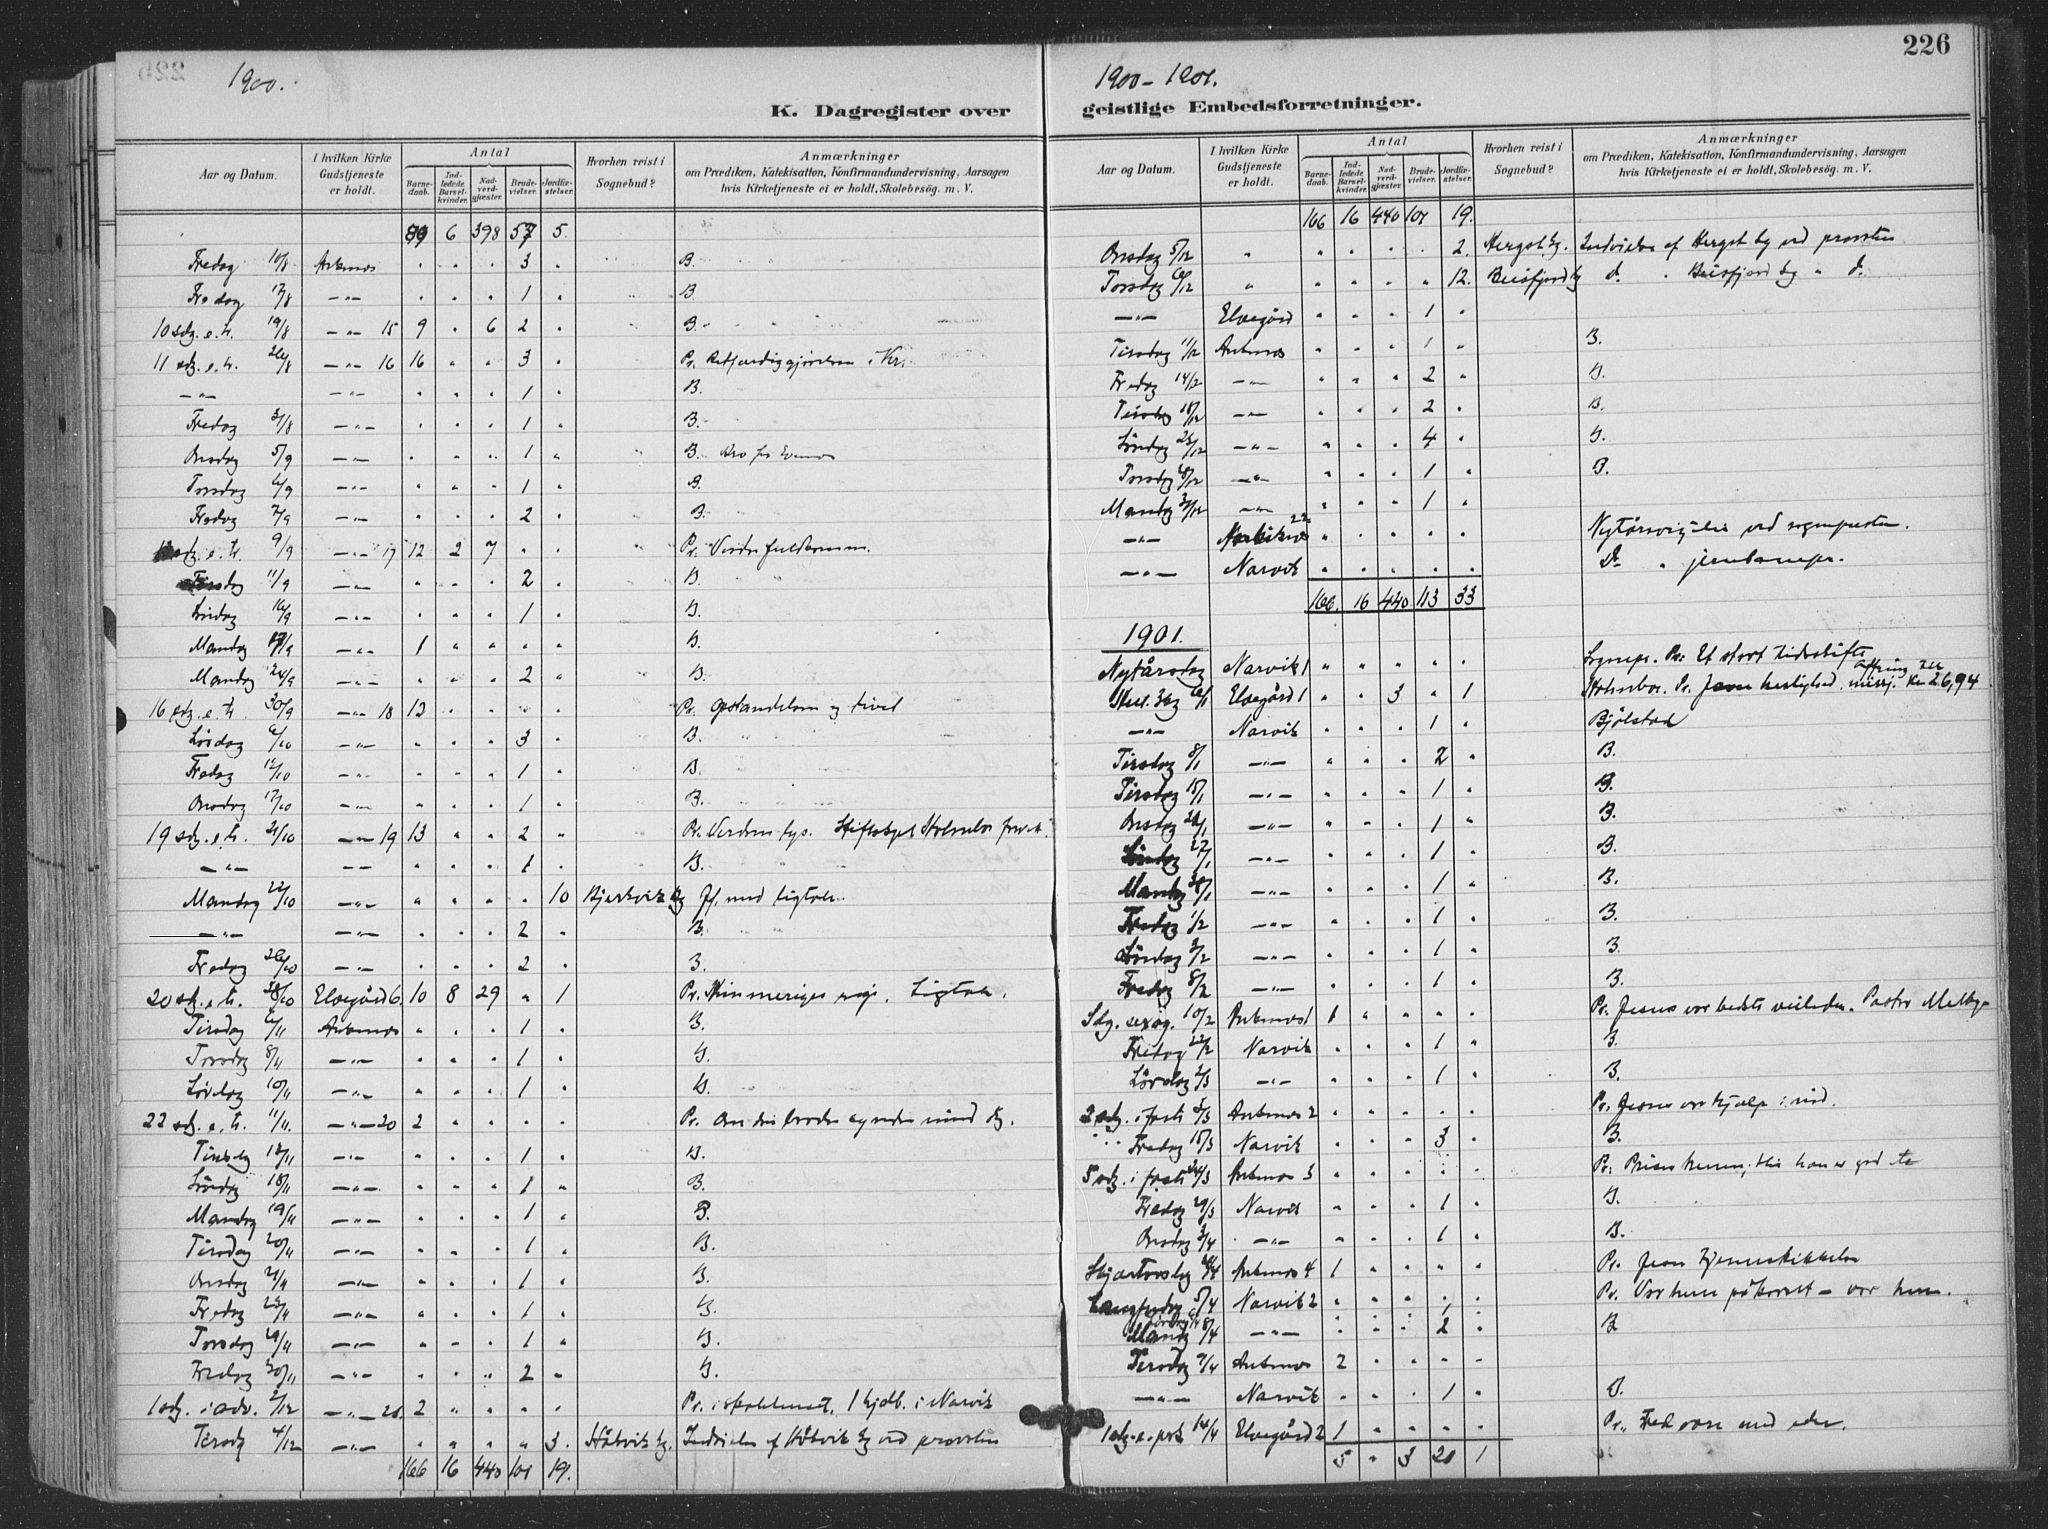 226
1900.
K. Dagregister over
Aar og Datum.
I hvilken Kirke Gudstjeneste er holdt.
Antal
Barnedaab.
Indledede Barselkvinder.
Nadverdgjæster.
Brudevielser.
Jordfæstelser.
Hvorhen reist i Sognebud?
Anmærkninger
om Prædiken, Katekisation, Konfirmandundervisning, Aarsagen
hvis Kirketjeneste ei er holdt, Skolebesøg. m. V.
6 398 57 5.
Fredag 10/8 Ankenes " " " 3 " B.
Fredag 17/8 —"— " " " 1 " B
10 sdg. e. tr. 19/8 —"— 15 9 " 6 2 " B.
11 sdg. e. tr. 26/8 —"— 16 16 " " 3 " Pr. Retfærdiggjørelsen i Kr.
—"— —"— " " " 1 " B.
Fredag 31/8 —"— " " " 1 " B.
Onsdag 5/9 —"— " " " 1 " B.
Torsdag 6/9 —"— " " " 1 " B.
Fredag 7/9 —"— " " " 2 " B.
sdg. e. tr. 9/9 —"— 17 12 2 7 " " Pr.
Tirsdag 11/9 —"— " " " 2 " B.
Søndag 16/9 —"— " " " 1 " B.
Mandag 17/9 —"— 1 " " " " B.
Mandag 24/9 —"— " " " 2 " B.
16 sdg. e. tr. 30/9 —"— 18 13 " " " " Pr. Opstandelsen og livet
Lørdag 6/10 —"— " " " 3 " B.
Fredag 12/10 —"— " " " 1 " B.
Onsdag 17/10 —"— " " " 1 " B.
19 sdg. e. tr. 21/10 —"— 19 13 " " 2 " Pr. Verdens lys. Stiftskapl. Holmboe
—"— —"— " " " 1 " B.
Mandag 22/10 —"— " " " " 10 Bjerkvik kg Jf. med ligtale.
—"— —"— " " " 2 " B.
Fredag 26/10 —"— " " " 2 " B.
20 sdg. e. tr. 28/10 Elvegård 6. 10 8 29 " 1 Pr. Ligtale.
Tirsdag 6/11 Ankenes " " " 1 " B.
Torsdag 8/11 —"— " " " 1 " B.
Lørdag 10/11 —"— " " " 1 " B.
22 sdg. e. tr. 11/11. —"— 20 2 " " " " Pr. Om din broder synder imod dig.
Tirsdag 13/11 —"— " " " 1 " B.
Søndag 18/11 —"— " " " 1 " B.
Mandag 19/11 —"— " " " 1 " B.
Tirsdag 20/11 —"— " " " 1 " B.
Onsdag 21/11 —"— " " " 1 " B.
Fredag 23/11 —"— " " " 1 " B.
Torsdag 29/11 —"— " " " 1 " B.
Fredag 30/11 —"— " " " 2 " B.
1 sdg. i adv. 2/12 —"— 2 " " " " Pr. i skolehuset. 1 hjdb. i Narvik
Tirsdag 4/12 —"— " " " " 3. Håkvik kg. Indvielse af Håkvik kg ved provsten
166 16 440 101 19.
1900 - 1901.
geistlige Embedsforretninger.
Aar og Datum.
I hvilken Kirke Gudstjeneste er holdt.
Antal
Barnedaab.
Indledede Barselkvinder.
Nadverdgjæster.
Brudevielser.
Jordfæstelser.
Hvorhen reist i Sognebud?
Anmærkninger
om Prædiken, Katekisation, Konfirmandundervisning, Aarsagen
hvis Kirketjeneste ei er holdt, Skolebesøg. m. V.
166 16 440 101 19.
Onsdag 5/12 " " " " " 2. kg. Indvielse af kg ved provsten
Torsdag 6/12 " " " " " 12. Beisfjord kg d. " Beisfjord kg " d.
—"— Elvegård " " " 1 "
Tirsdag 11/12 Ankenes " " " 1 " B.
Fredag 14/12 —"— " " " 2 " B.
Tirsdag 18/12 —"— " " " 2 " B.
Søndag 23/12 —"— " " " 4 " B.
Torsdag —"— " " " 1 " B.
Mandag 31/12 —"— " " " 1 "
—"— 22 " " " " " Nytårsvigilie ved sognepresten.
—"— Narvik " " " " " Do "
166. 16 440 113 33
1901.
Nytårsdag Narvik 1 " " " " " Sognepr. Pr. Et stort tidsskifte
Hel. 3 kg 6/1 Elvegård 1 " " 3 " 1 Holmboe. Pr. Jesu herlighed. Ofring missj. Kr 26,94
—"— Narvik " " " 1 " Bjølstad
Tirsdag 8/1 —"— " " " 2 " B.
Tirsdag 15/1 —"— " " " 1 " B.
Onsdag —"— " " " 1 " B.
Søndag 27/1 —"— " " " 1 " B.
Mandag 28/1 —"— " " " 1 " B.
Fredag 1/2 —"— " " " 1 " B.
Søndag 3/2 —"— " " " 1 " B.
Fredag 8/2 —"— " " " 1 " B.
Sdg. sexag. 10/2 Ankenes 1 1 " " " " Pr. Jesus vor bedste veileder. Pastor
Fredag 22/2 Narvik " " " 1 " B.
Lørdag 2/3 —"— " " " 1 " B.
2 sdg. i faste 3/3 Ankenes 2 " " " " " Pr. Jesus vor hjælp i nød.
Fredag 15/3 Narvik " " " 3 " B.
5 sdg. i faste 24/3 Ankenes 3 " " " " " Pr.
Fredag 29/3 Narvik " " " 1 " B.
Onsdag 3/4 —"— " " " 1 " B.
Skjærtorsdag 4/4 Ankenes 4 1 " " " " Pr. Jesu tjenerskikkelse
Langfredag 5/4 Narvik 2 " " " " " Pr.
Mandag 8/4 —"— " " " 2 " B
Tirsdag 9/4 Ankenes 2 " " " "
—"— Narvik " " " 1 " B.
1 sdg. e. psk 14/4 Elvegård 2 1 " " " " Pr. Fred være med eder.
5 " 3 20 1